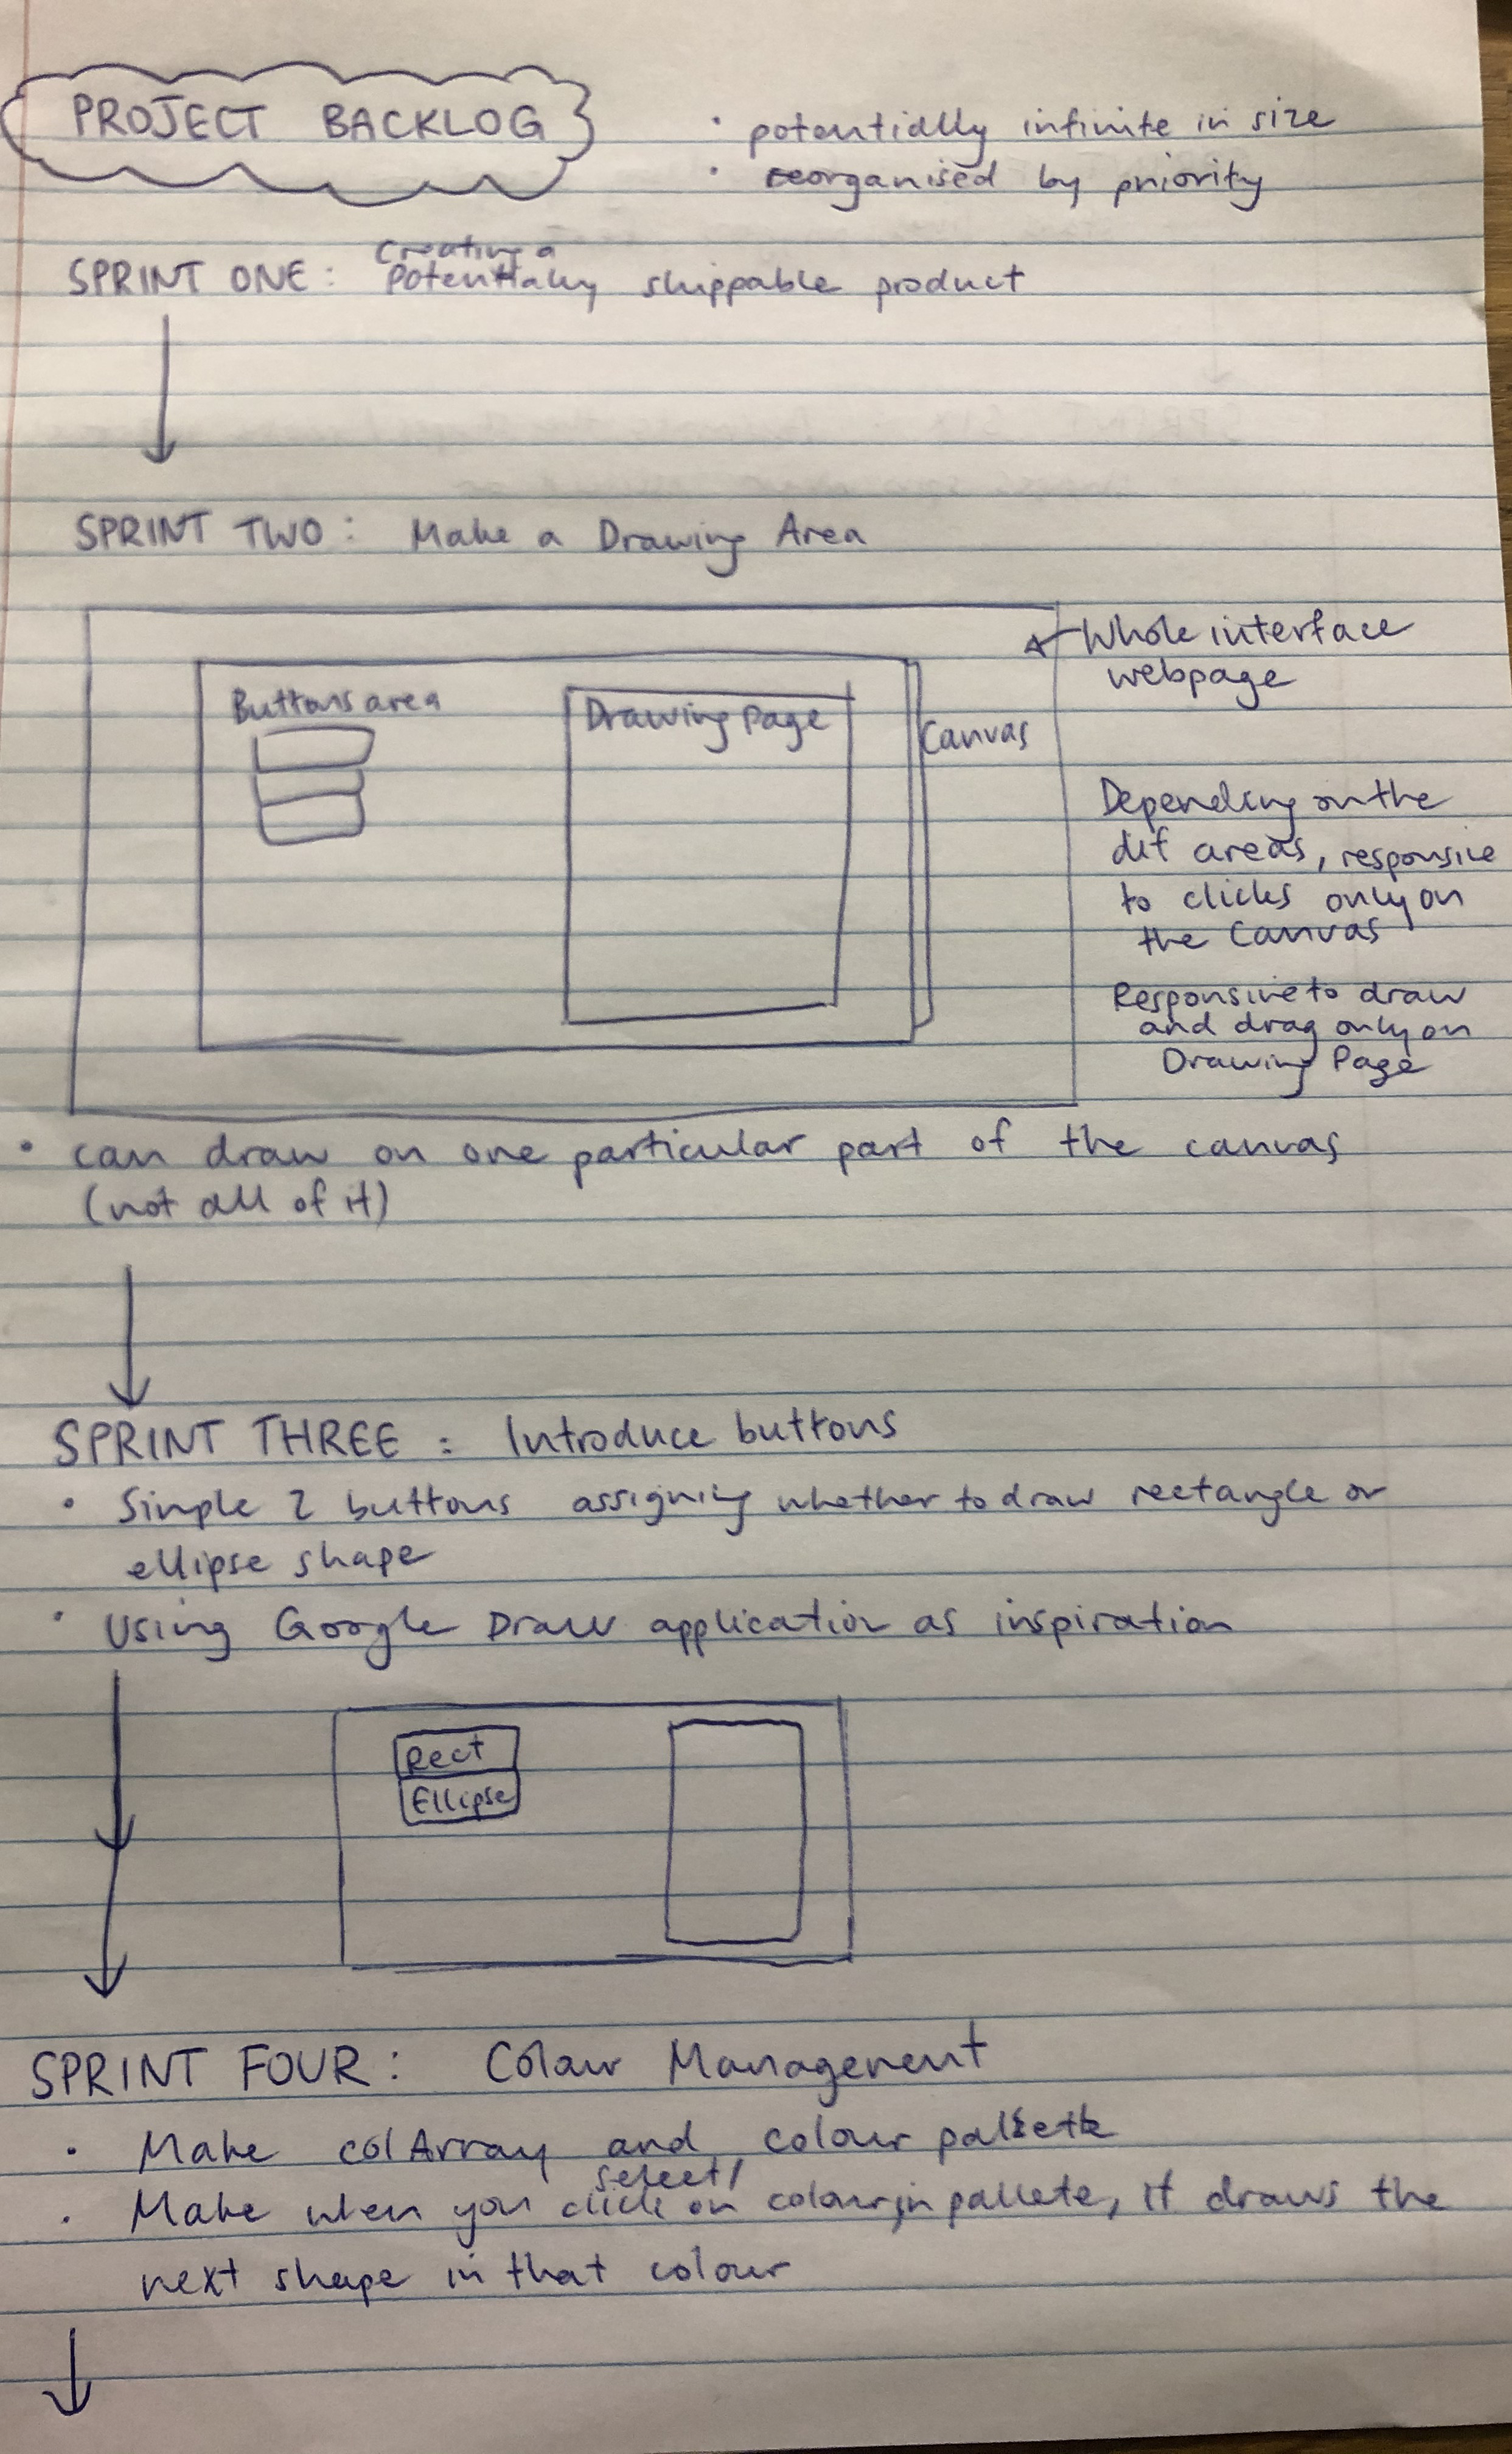 PROJECT BACKLOG
• potentially infinite in size
• reorganised by priority
creating a
SPRINT ONE: potentially shippable product
SPRINT TWO: Make a Drawing Area
Whole interface
webpage
Buttons area
Drawing Page
Canvas
Depending on the
dif areas, responsive
to clicks only on
the Canvas
Responsive to draw
and drag only on
Drawing Page
• can draw on one particular part of the canvas
(not all of it)
SPRINT THREE: Introduce buttons
• Simple 2 buttons assigning whether to draw rectangle or
ellipse shape
• Using Google Draw application as inspiration
Rect
Ellipse
SPRINT FOUR: Colour Management
• Make colArray and colour
select/
• Make when you click on colour in pallete, it draws the
next shape in that colour